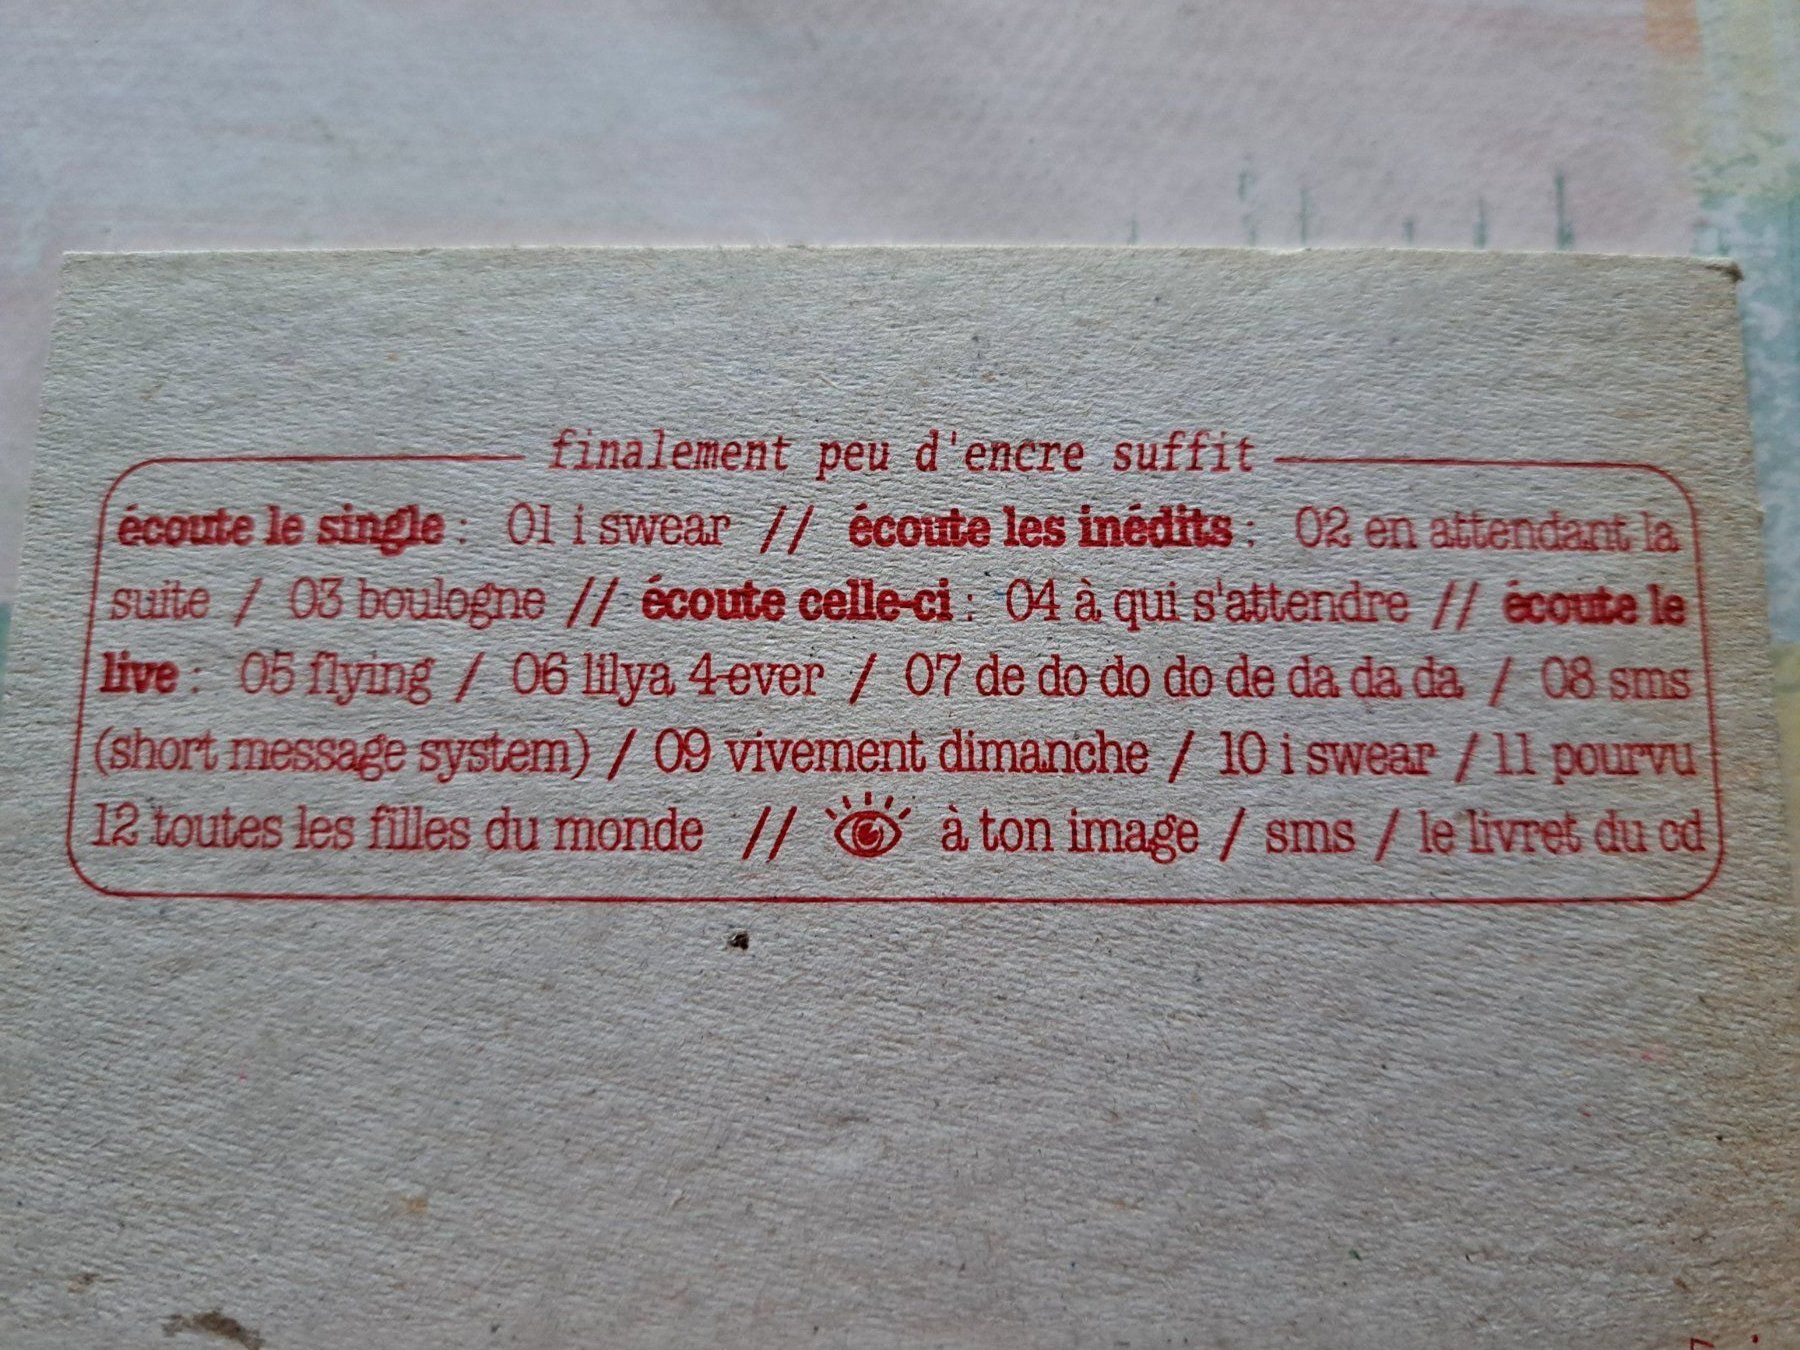 finalement peu d'encre suffit
écoute le single : 01 i swear // écoute les inédits : 02 en attendant la
suite / 03 boulogne // écoute celle-ci : 04 à qui s'attendre // écoute le
live : 05 flying / 06 lilya 4-ever / 07 de do do do de da da da / 08 sms
(short message system) / 09 vivement dimanche / 10 i swear / 11 pourvu
12 toutes les filles du monde // à ton image / sms / le livret du cd